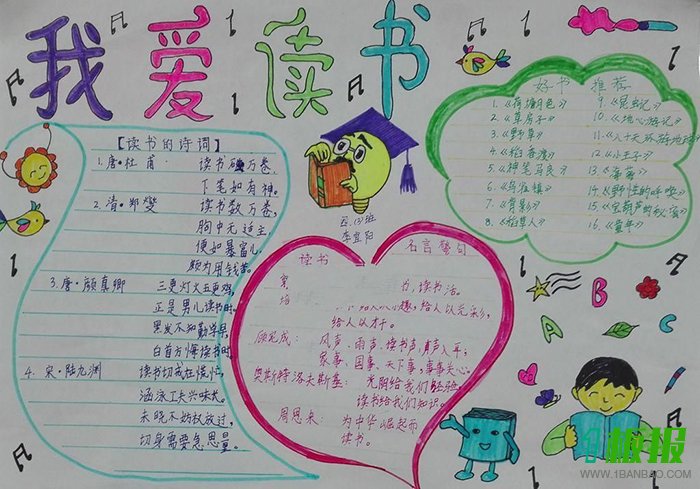 我爱读书
【读书的诗词】
1.唐·杜甫 读书破万卷,
下笔如有神。
2.清·郑燮 读书数万卷,
胸中无适主,
便如暴富儿,
颇为用钱苦。
3.唐·颜真卿 三更灯火五更鸡,
正是男儿读书时。
黑发不知勤学早,
白首方悔读书迟。
4.宋·陆九渊 读书切戒在慌忙,
涵泳工夫兴味长。
未晓不妨权放过,
切身需要急思量。
四、(3)班
李宜阳
读书 名言警句
力,读书活。
趣,给人以光彩,
给人以才干。
顾宪成: 风声、雨声、读书声,声声入耳;
家事、国事、天下事,事事关心。
奥斯特洛夫斯基: 光阴给我们经验,
读书给我们知识。
周恩来: 为中华崛起而
读书。
好书 推荐
1.《荷塘月色》
2.《草房子》
3.《野草》
4.《稻香渡》
5.《神笔马良》
6.《乌丢镇》
7.《背影》
8.《稻草人》
9.《昆虫记》
10.《地心游记》
11.《八十天环游地球》
12.《小王子》
13.《海蒂》
14.《野性的呼唤》
15.《宝葫芦的秘密》
16.《童年》
A B C
板报
WWW.1BANBAO.COM